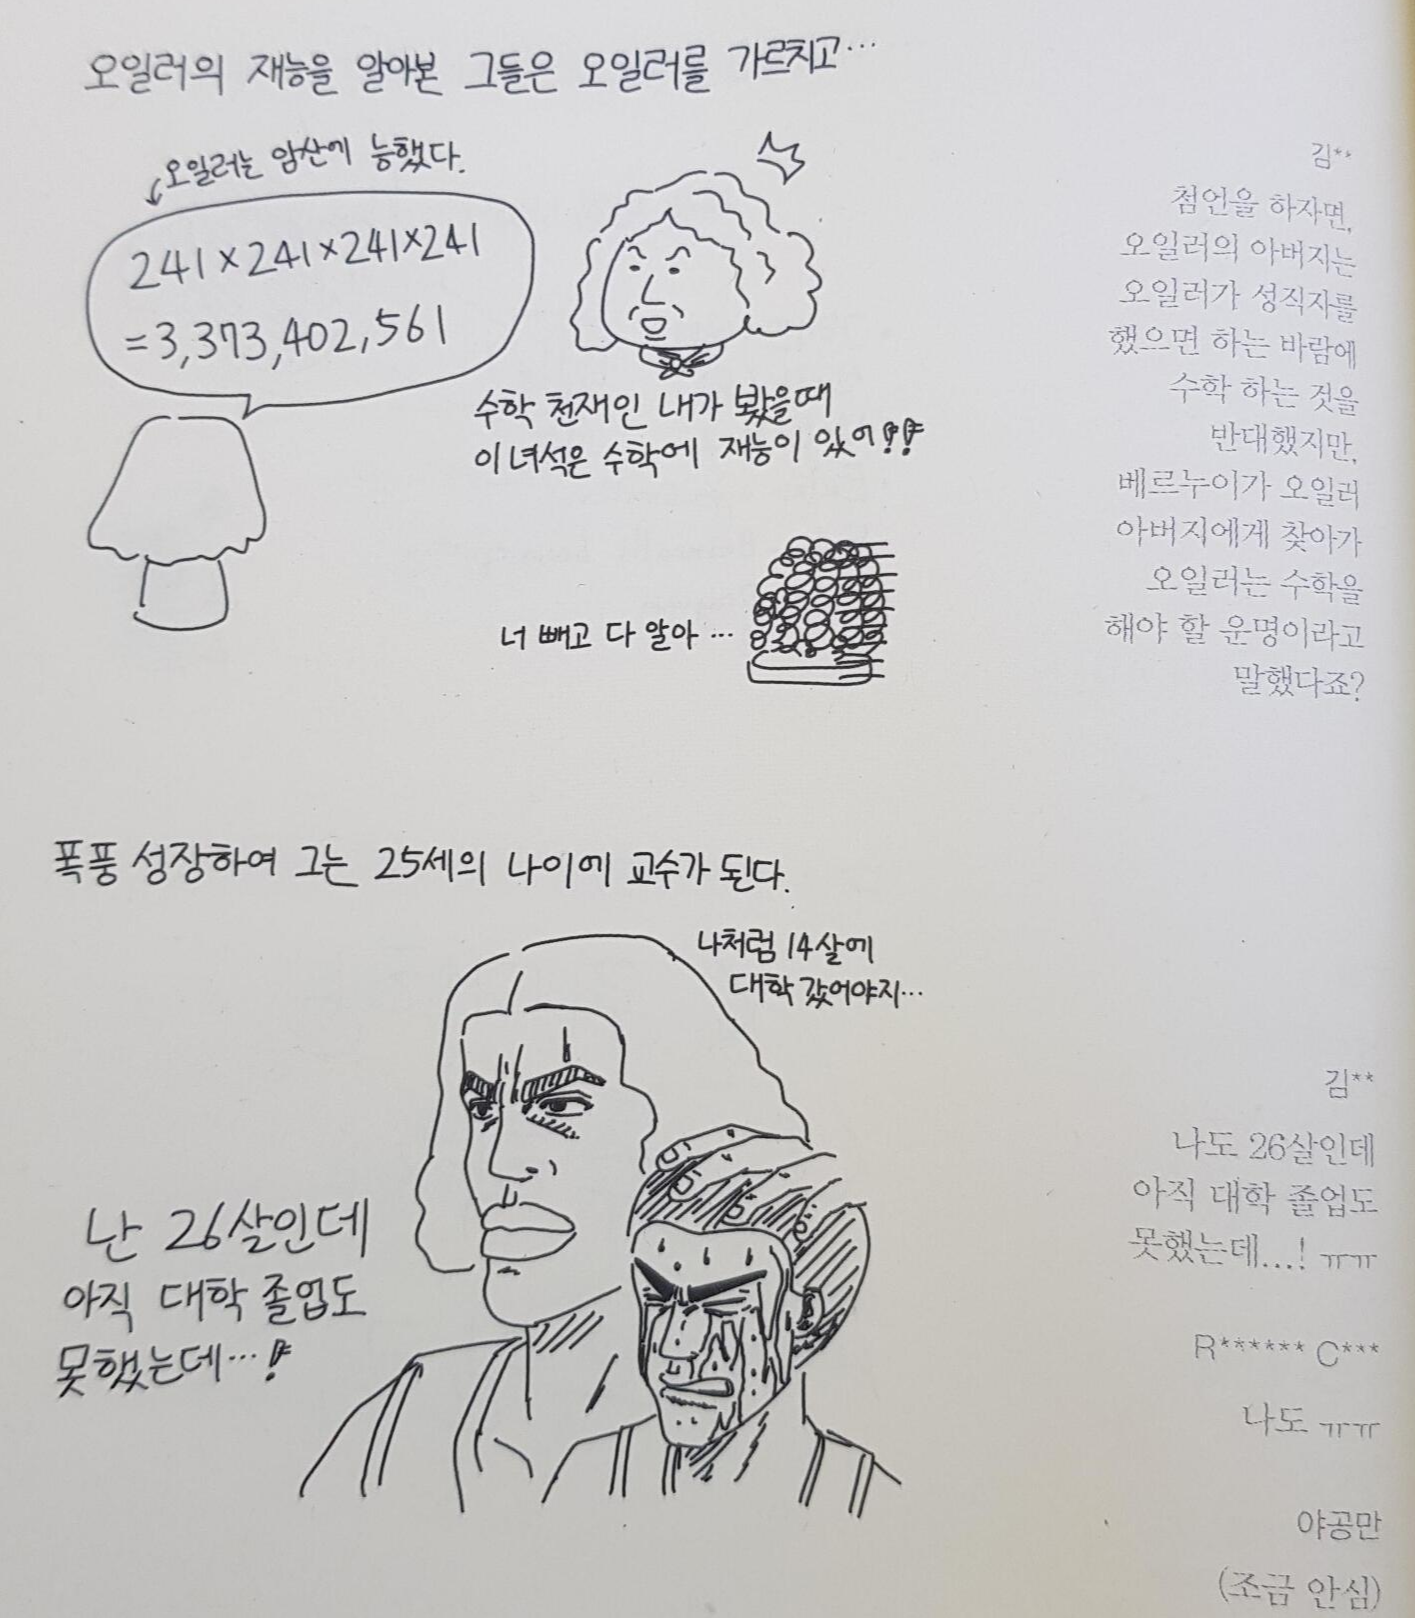 오일러의 재능을 알아본 그들은 오일러를 가르치고…
오일러는 암산에 능했다.
241×241×241×241
=3,373,402,561
수학 천재인 내가 봤을때
이 녀석은 수학에 재능이 있어!!
너 빼고 다 알아 …
김**
첨언을 하자면,
오일러의 아버지는
오일러가 성직자를
했으면 하는 바람에
수학 하는 것을
반대했지만,
베르누이가 오일러
아버지에게 찾아가
오일러는 수학을
해야 할 운명이라고
말했다죠?
폭풍 성장하여 그는 25세의 나이에 교수가 된다.
나처럼 14살에
대학 갔어야지…
난 26살인데
아직 대학 졸업도
못했는데…!
김**
나도 26살인데
아직 대학 졸업도
못했는데...! ㅠㅠ
R****** C***
나도 ㅠㅠ
야공만
(조금 안심)